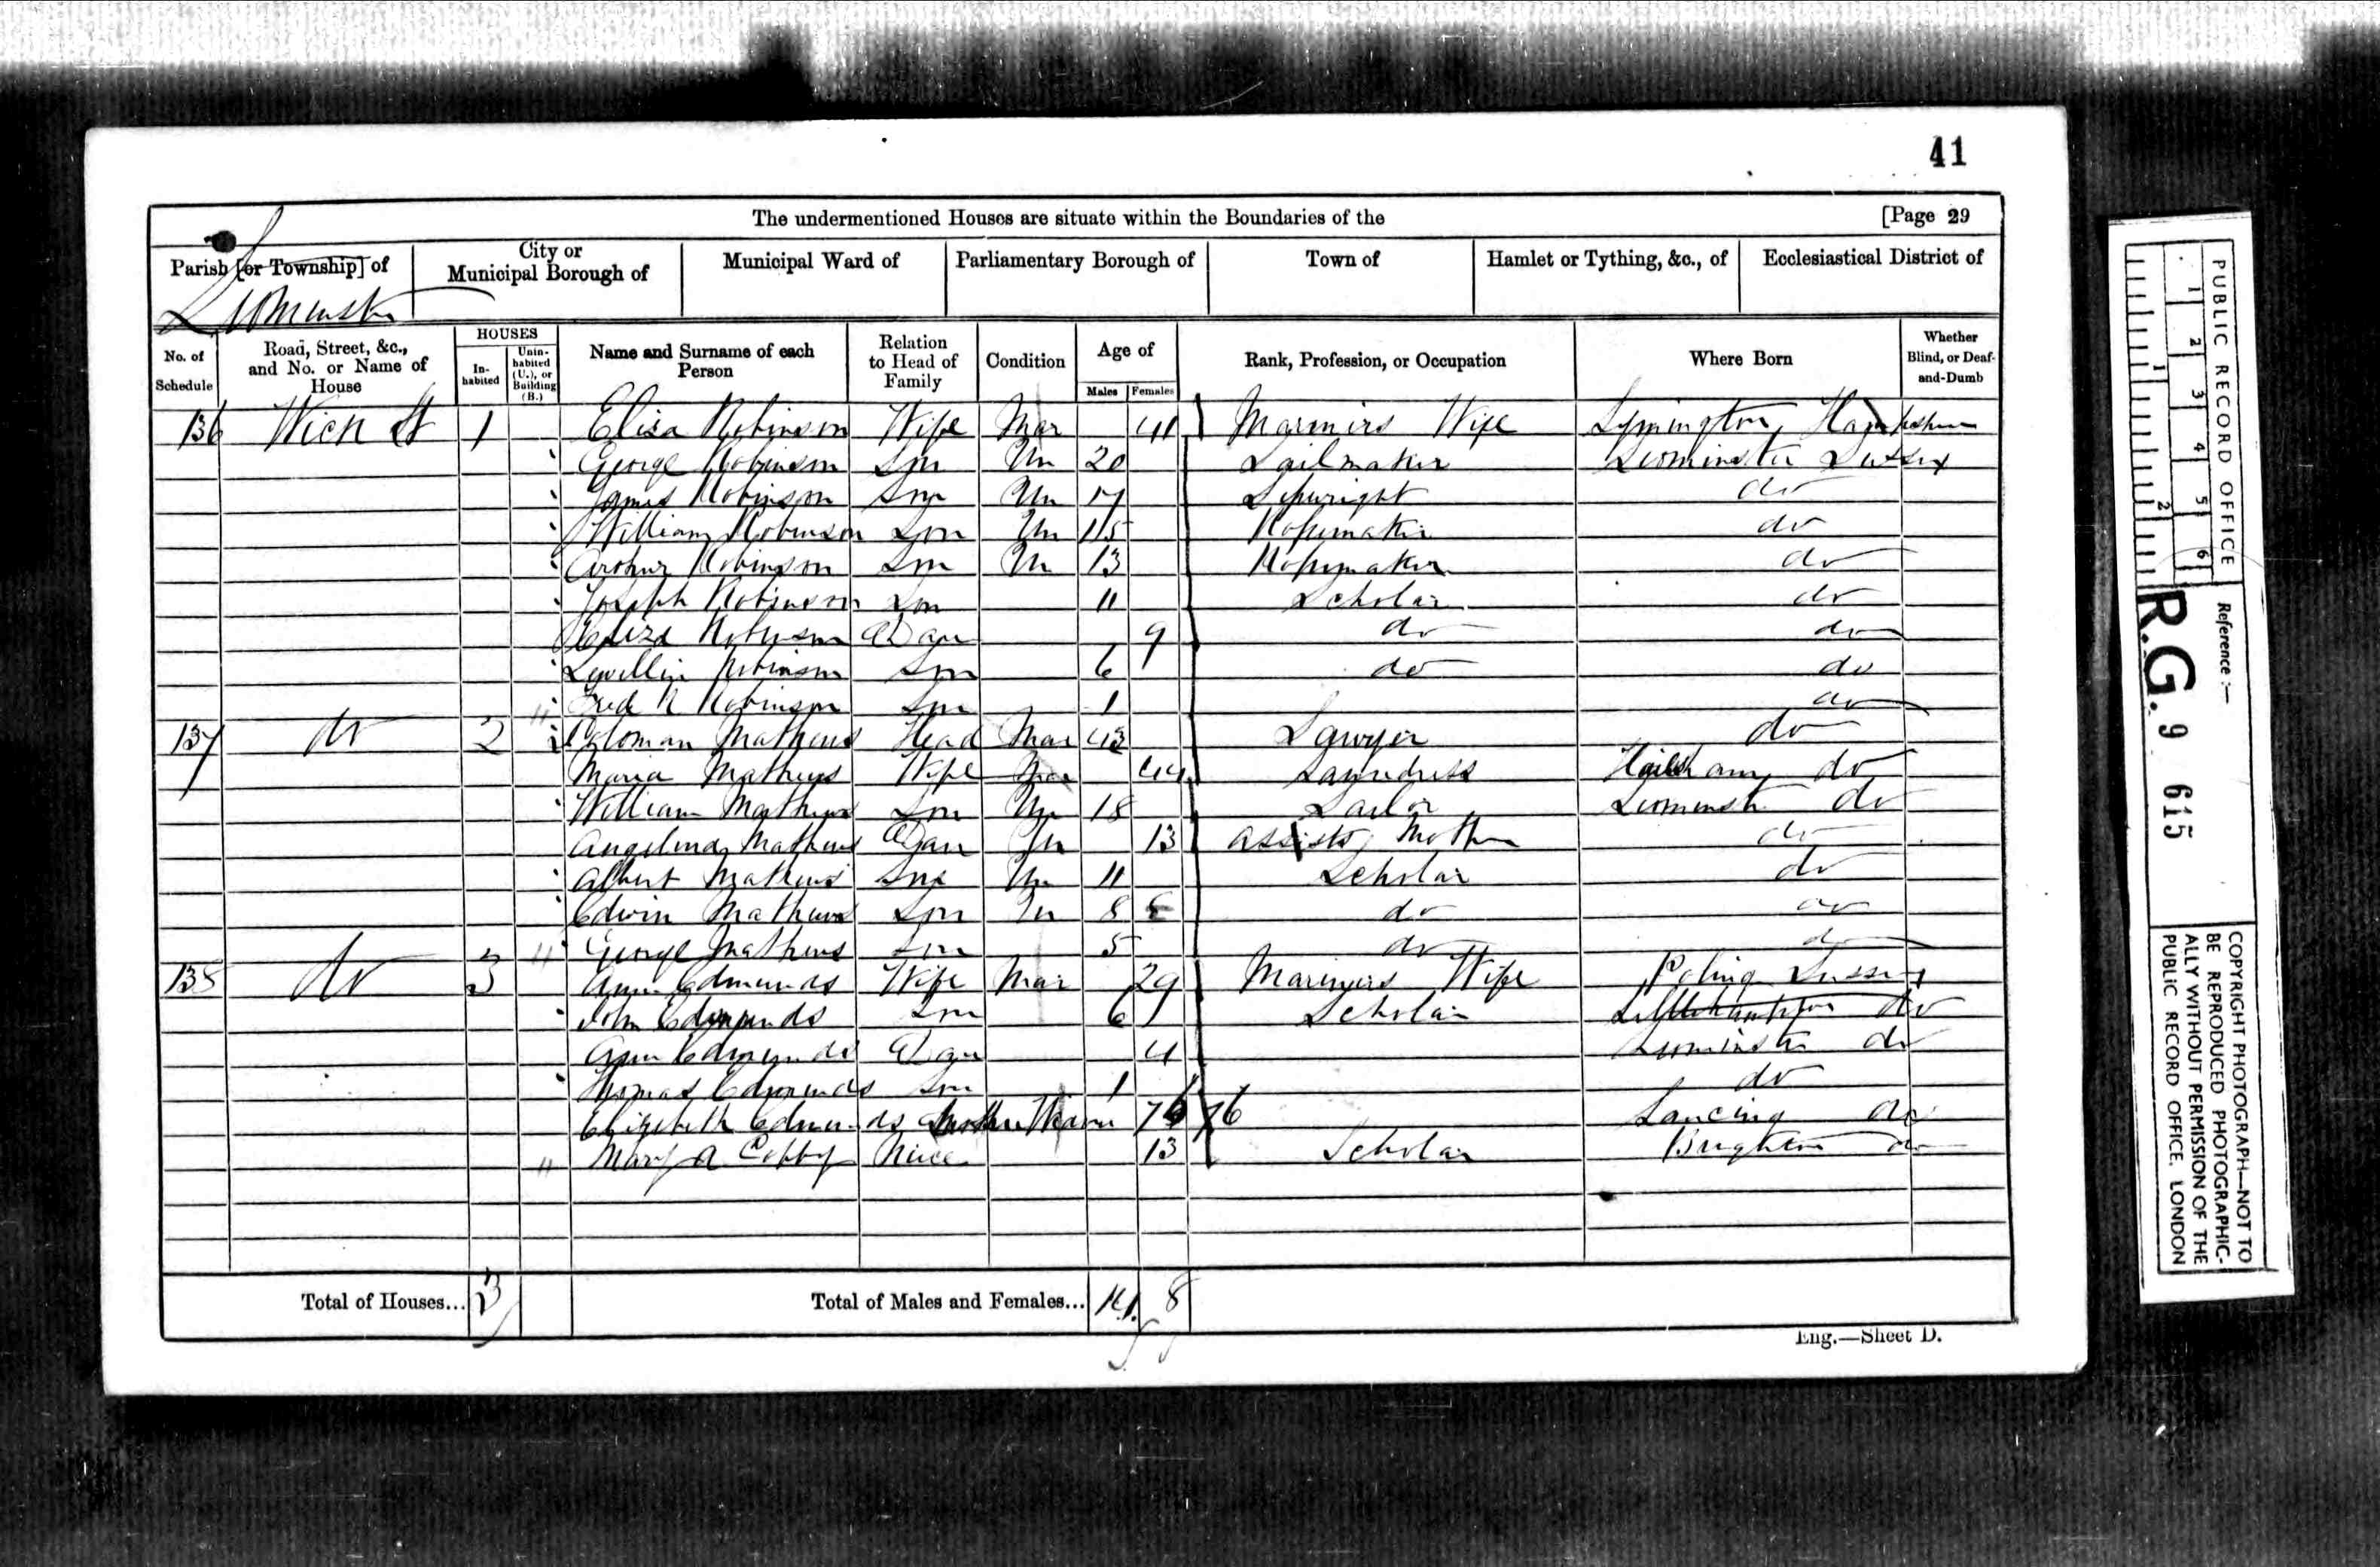 41
The undermentioned Houses are situate within the Boundaries of the [Page 29
Parish [or Township] of City or Municipal Borough of Municipal Ward of Parliamentary Borough of Town of Hamlet or Tything, &c., of Ecclesiastical District of
Leominster
No. of Schedule Road, Street, &c., and No. or Name of House HOUSES In-habited Unin-habited (U.), or Building (B.) Name and Surname of each Person Relation to Head of Family Condition Age of Males Females Rank, Profession, or Occupation Where Born Whether Blind, or Deaf-and-Dumb
136 Wick St 1 Eliza Robinson Wife Mar 41 Mariners Wife Lymington Hampshire
George Robinson Son Un 20 Sailmaker Leominster Sussex
James Robinson Son Un 17 do
William Robinson Son Un 15 Ropemaker do
Arthur Robinson Son Un 13 Ropemaker do
Joseph Robinson Son 11 Scholar do
Eliza Robinson Daur 9 do do
Lewellin Robinson Son 6 do do
Fred R Robinson Son 1 do
137 do 2 Soloman Mathews Head Mar 43 Sawyer do
Maria Mathews Wife Mar 44 Laundress Hailsham do
William Mathews Son Un 18 Sailor Leominster do
Angelina Mathews Daur Un 13 Assists Mother do
Albert Mathews Son Un 11 Scholar do
Edwin Mathews Son Un 8 do do
George Mathews Son 5 do do
138 do 3 Ann Edmunds Wife Mar 29 Mariners Wife Poling Sussex
John Edmunds Son 6 Scholar Littlehampton do
Ann Edmunds Daur 4 Leominster do
Thomas Edmunds Son 1 do
Elizabeth Edmunds Mother 76 76 Lancing do
Mary A Cobby Niece 13 Scholar Brighton do
Total of Houses... 3 Total of Males and Females... 14 8
Eng.—Sheet D.
PUBLIC RECORD OFFICE
1 2 3 4 5 6
1 2
Reference :—
R.G. 9 615
COPYRIGHT PHOTOGRAPH—NOT TO
BE REPRODUCED PHOTOGRAPHIC-
ALLY WITHOUT PERMISSION OF THE
PUBLIC RECORD OFFICE, LONDON